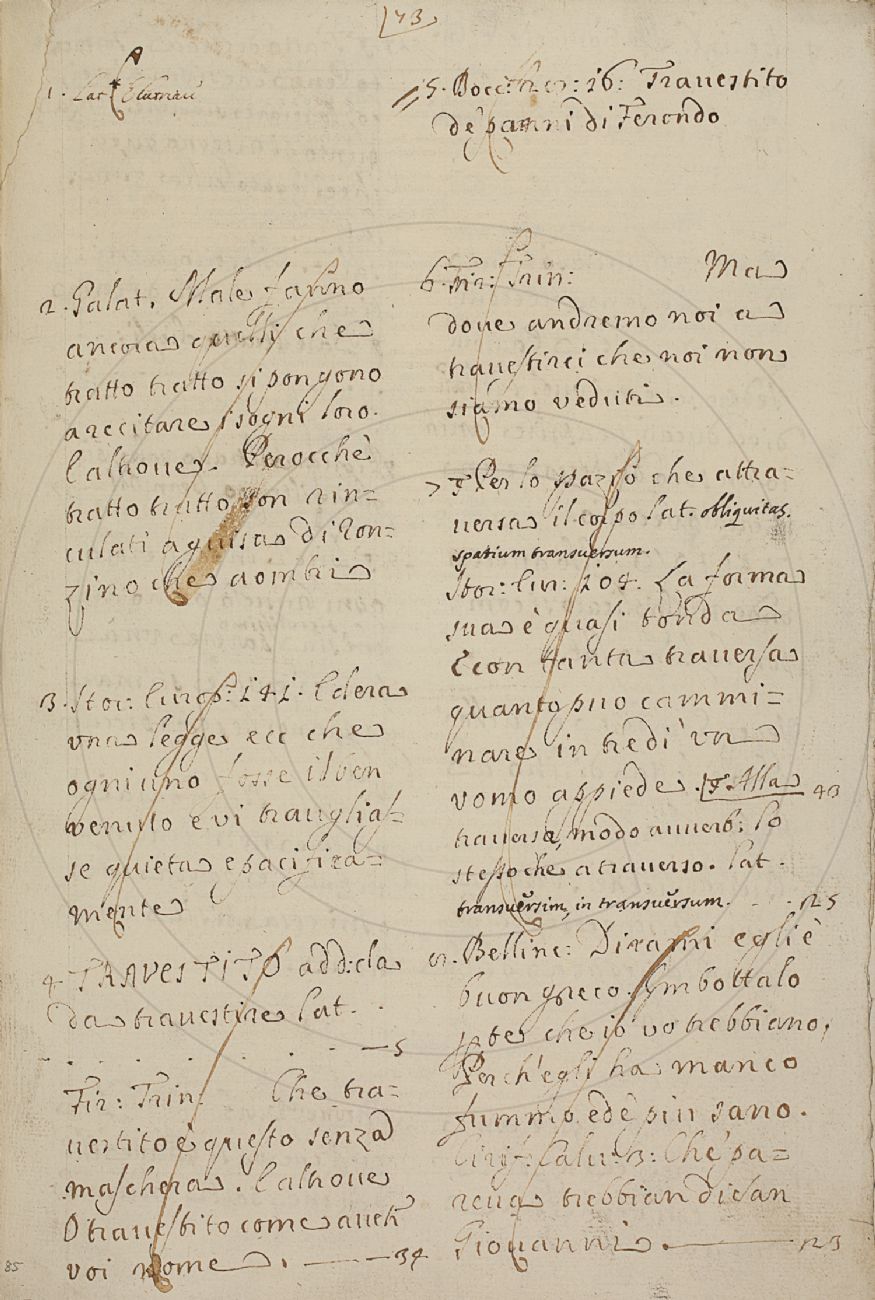 73
1. Lat.
2. Galat. Male fanno
ancora quelli che
tratto tratto si pongono
a recitare i sogni loro.
E altrove. Perocchè
tratto tratto son rin=
culati a guisa di Ron=
zino che aombri
3. Stor: Europ: 141. Ed era
una legge ecc che
ogniuno fosse il ben
venuto e vi trauagliaſ=
se quieta e pacifica=
mente
4. TRAVESTITO add: da
da trauestire Lat. .
. . . . . . . — 5
Fir: Trin: Che tra=
uestito è questo senza
maschera. E altroue
O trauestito come aueti
voi nome. — 34
85
5. Bocc: n: 16: Trauestito
de panni di Ferondo
6. Fir: Trin: Ma
doue andremo noi a
trauestirci che noi non
siamo veduti.
7 Per lo spazio che attra=
uersa il corpo Lat. obliquitas.
spatium transuersum.
Stor: Eur: 104. La forma
sua è quasi tonda
E con tanta trauersa
quanto può cammi=
nare in tre dì un
vomo appiede. Alla 43
trauersa, modo auuerb: lo
stesso che a trauerso. Lat.
transuersim, in transuersum. . . . 125
8. Bellinc: Dirami egli è
buon greco. Imbottalo
per te che io vo trebbiano,
Perch'egli ha manco
fummo, ed è piu sano.
Cirif: Calu: 3: Che pa=
reua trebbian di San
Giouanni. — 123